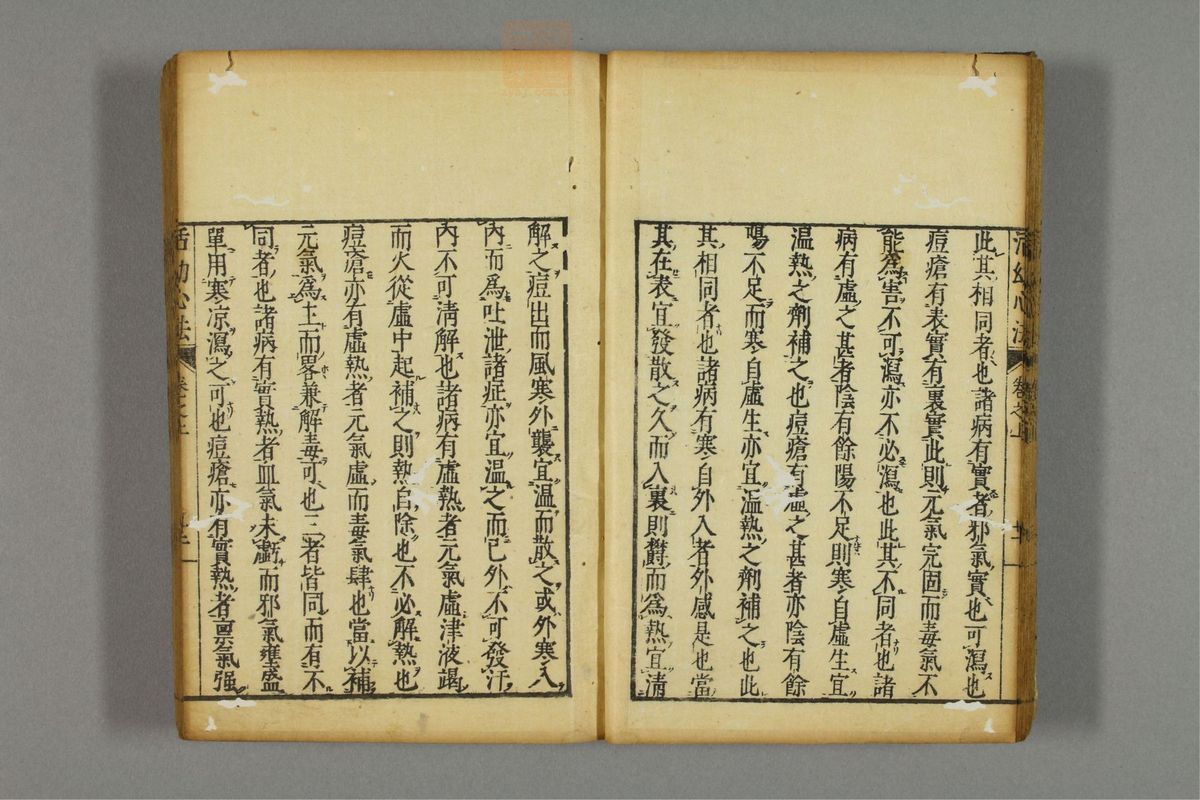 此其相同者也諸病有實者邪氣實也可瀉也
痘瘡有表實有裏實此則元氣完固而毒氣不
能為害不可瀉亦不必瀉也此其不同者也諸
病有虛之甚者陰有餘陽不足則寒自虛生宜
温熱之劑補之也痘瘡有虛之甚者亦陰有餘
陽不足而寒自虛生亦宜温熱之劑補之也此
其相同者也諸病有寒自外入者外感是也當
其在表宜發散之久而入裏則欝而為熱宜清
解之痘出而風寒外襲宜温而散之或外寒入
內而為吐泄諸症亦宜温之而已外不可發汗
內不可淸解也諸病有虛熱者元氣虛津液竭
而火從虛中起補之則熱自除也不必解熱也
痘瘡亦有虛熱者元氣虛而毒氣肆也當以補
元氣為主而畧兼解毒可也三者皆同而有不
同者也諸病有實熱者血氣未虧而邪氣壅盛
單用寒凉瀉之可也痘瘡亦有實熱者禀氣强
活幼心法
卷之上
活幼心法
卷之上